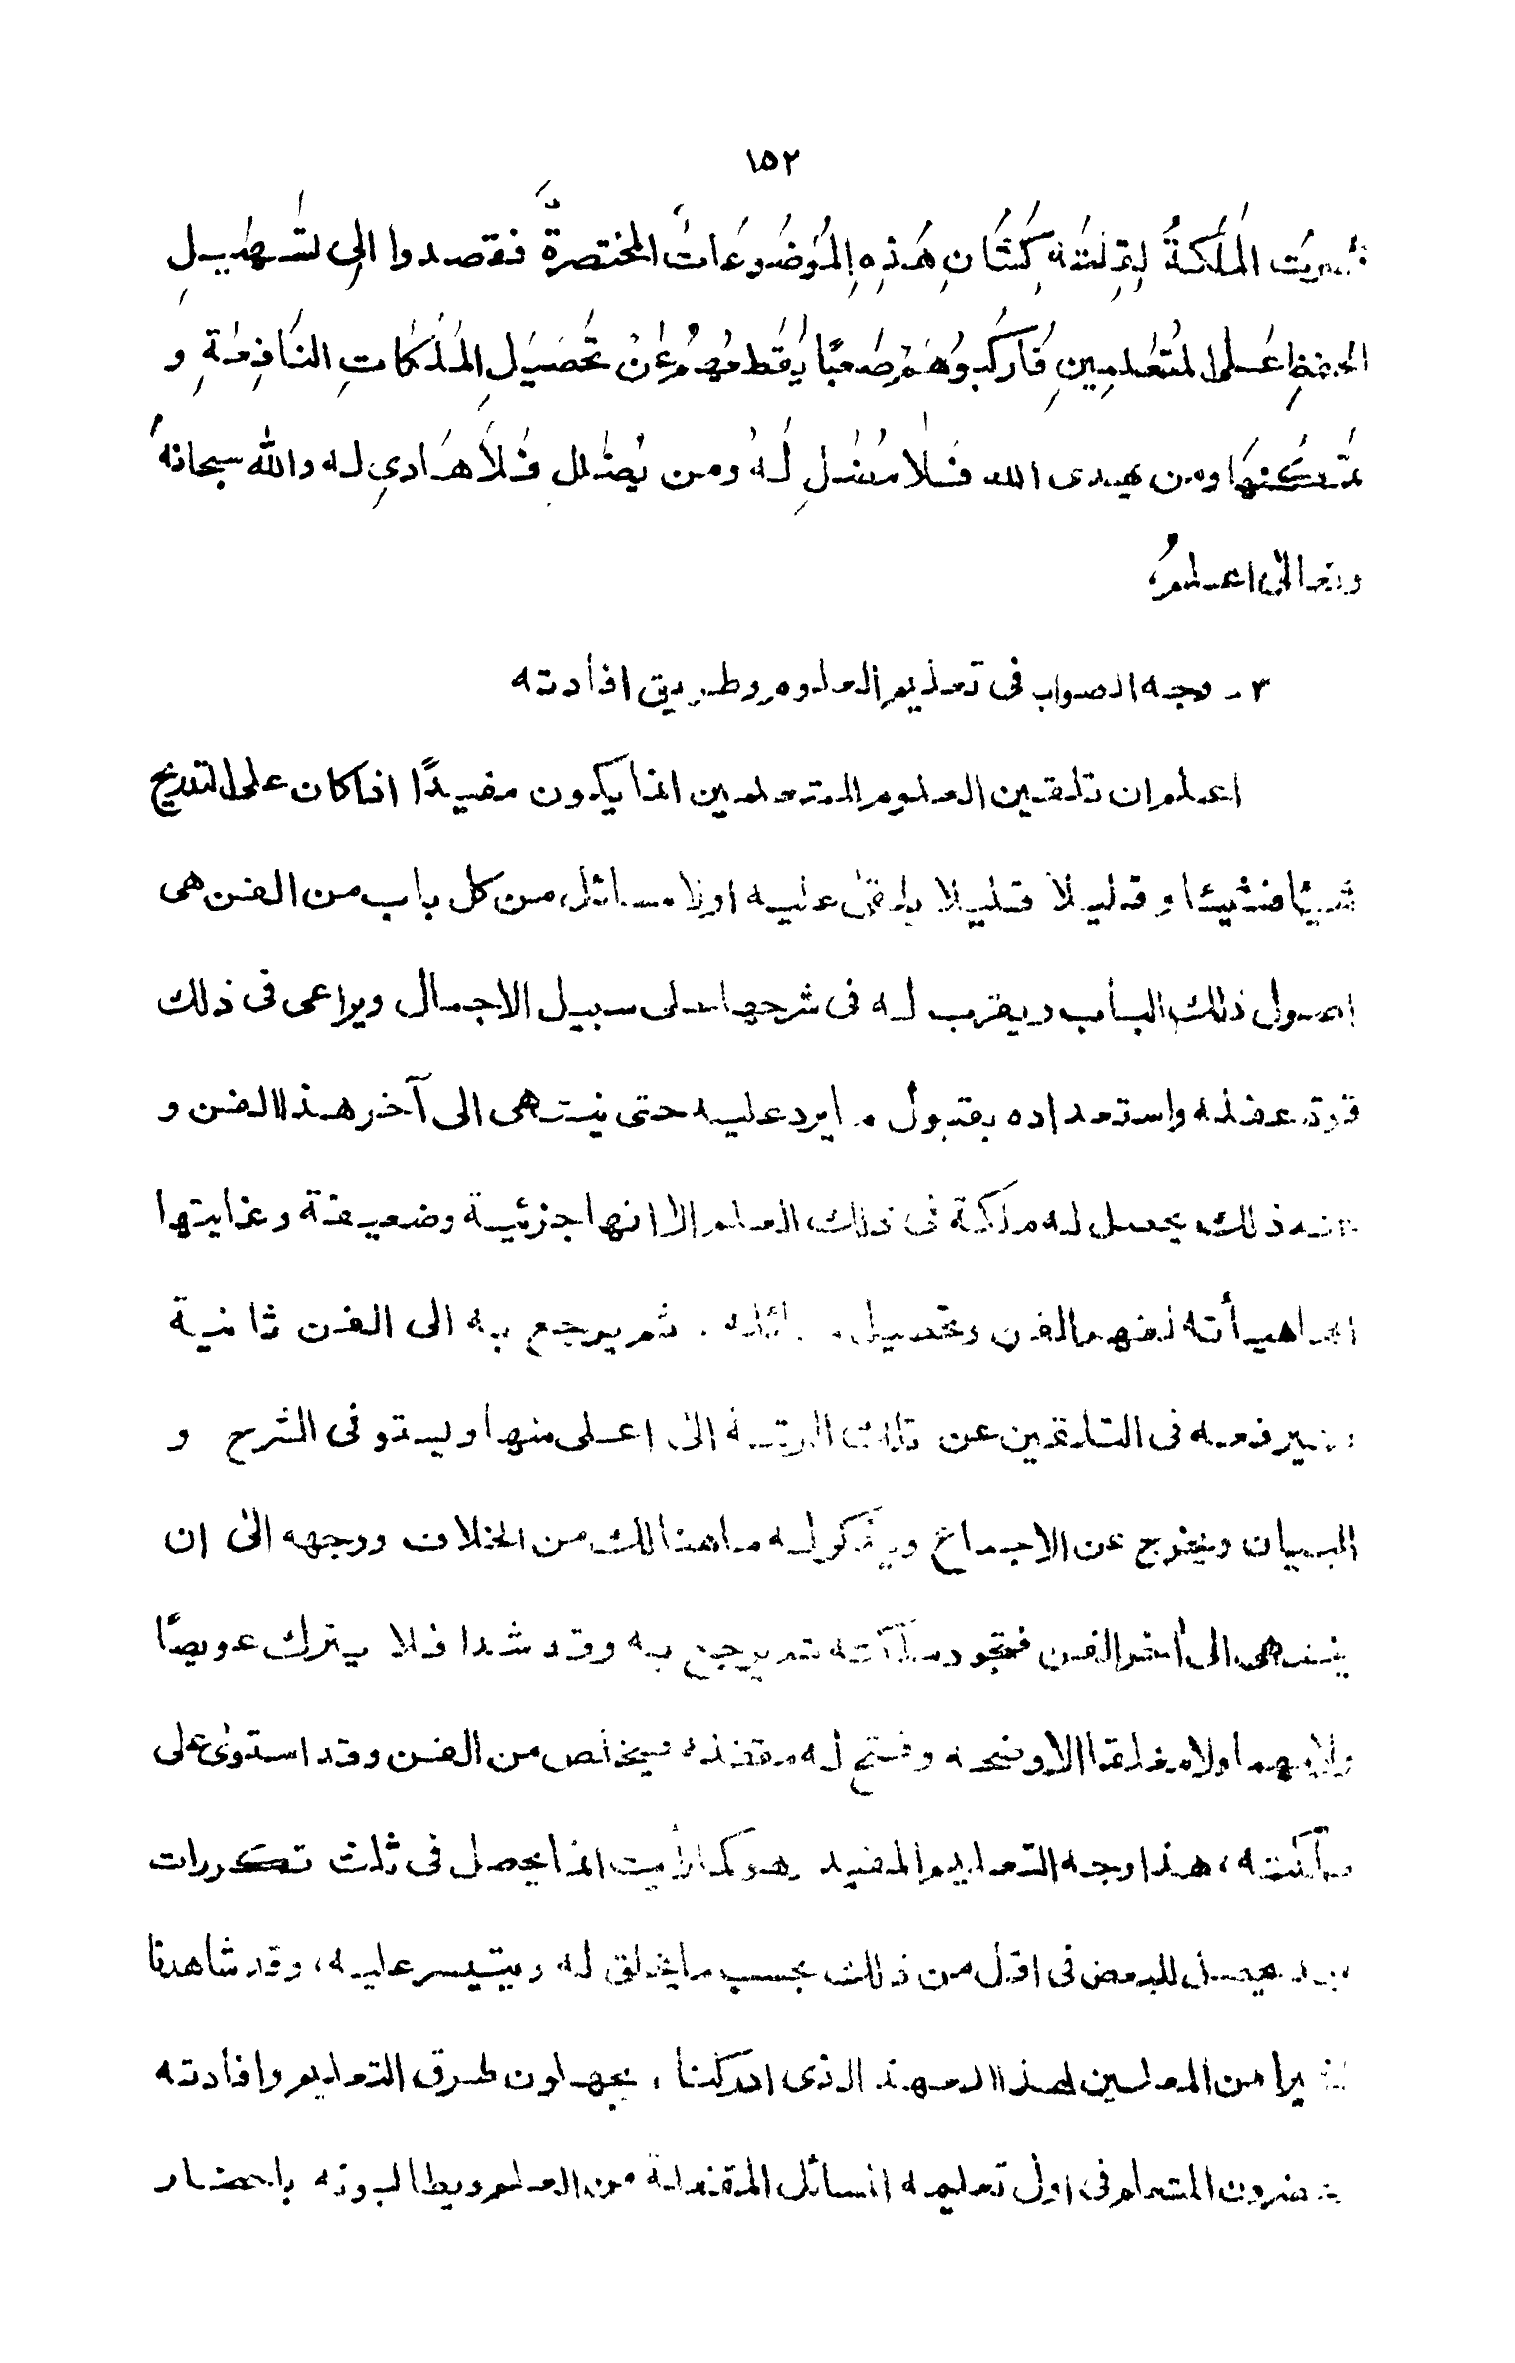 ١٥٢
الْمَلَكَةُ لِقِلَّتِهِ كَشَأنِ هَذِهِ الْمَوْضُوعَاتُ المختصرةَّ فقصدوا الى لتسهيلِ
الحفظِ عَلى المُتَعَلِمِينِ فَاركبوُهَمْ صَعبًا يَقطعُهمُ عَنْ تحْصَيَلِ الْمَلَكَاتِ النَافِعَةِ و
تمَكنهَا ومن يهدى الله فَلا مُضَلِ لَهُ ومن يُضَلل فَلاَ هَادىِ له والله سبحانهُ
وتعالى اعلمُ،
٣ - وجه الصواب فى تعليم العلوم وطريق افادته
اعلم ان تلقين العلوم المتعلمين انما يكون مفيدًا اذا كان على التدريج
شيئا فشيئا و قليلا قليلا يلقى عليه اولا مسائل من كل باب من الفن هى
اصول ذلك الباب ويقرب له فى شرحها على سبيل الاجمال ويراعى فى ذلك
قوة عقله واستعداده بقبول ما يرد عليه حتى ينتهى الى آخر هذا الفن و
عند ذلك يحصل له ملكة فى ذلك العلم الا انها جزئية وضعيفة وغايتها
انها هيأته لفهم الفن وتحصيل مسائله . ثم يرجع به الى الفن ثانية
فيرفعه فى التلقين عن تلك الرتبة الى اعلى منها ويستوفى الشرح و
البيان ويخرج عن الاجماع ويذكر له ما هنالك من الخلاف ووجهه الى ان
ينتهى الى أخر الفن فتجود ملكته ثم يرجع به وقد شدا فلا يترك عويصًا
ولا مهما ولا مغلقا الا وضحه وفتح له مقفله فيخلص من الفن وقد استولى على
ملكته، هذا وجه التعليم المفيد وهو كما رأيت انما يحصل فى ثلث تكررات
وقد يحصل للبعض فى اقل من ذلك بحسب ما يخلق له ويتيسر عليه، وقد شاهدنا
كثيرا من المعلمين لهذا العهد الذى ادركنا، يجهلون طرق التعليم وافادته
يحضرون المتعلم فى اول تعليمه المسائل المقفلة من العلم ويطالبونه باحضار